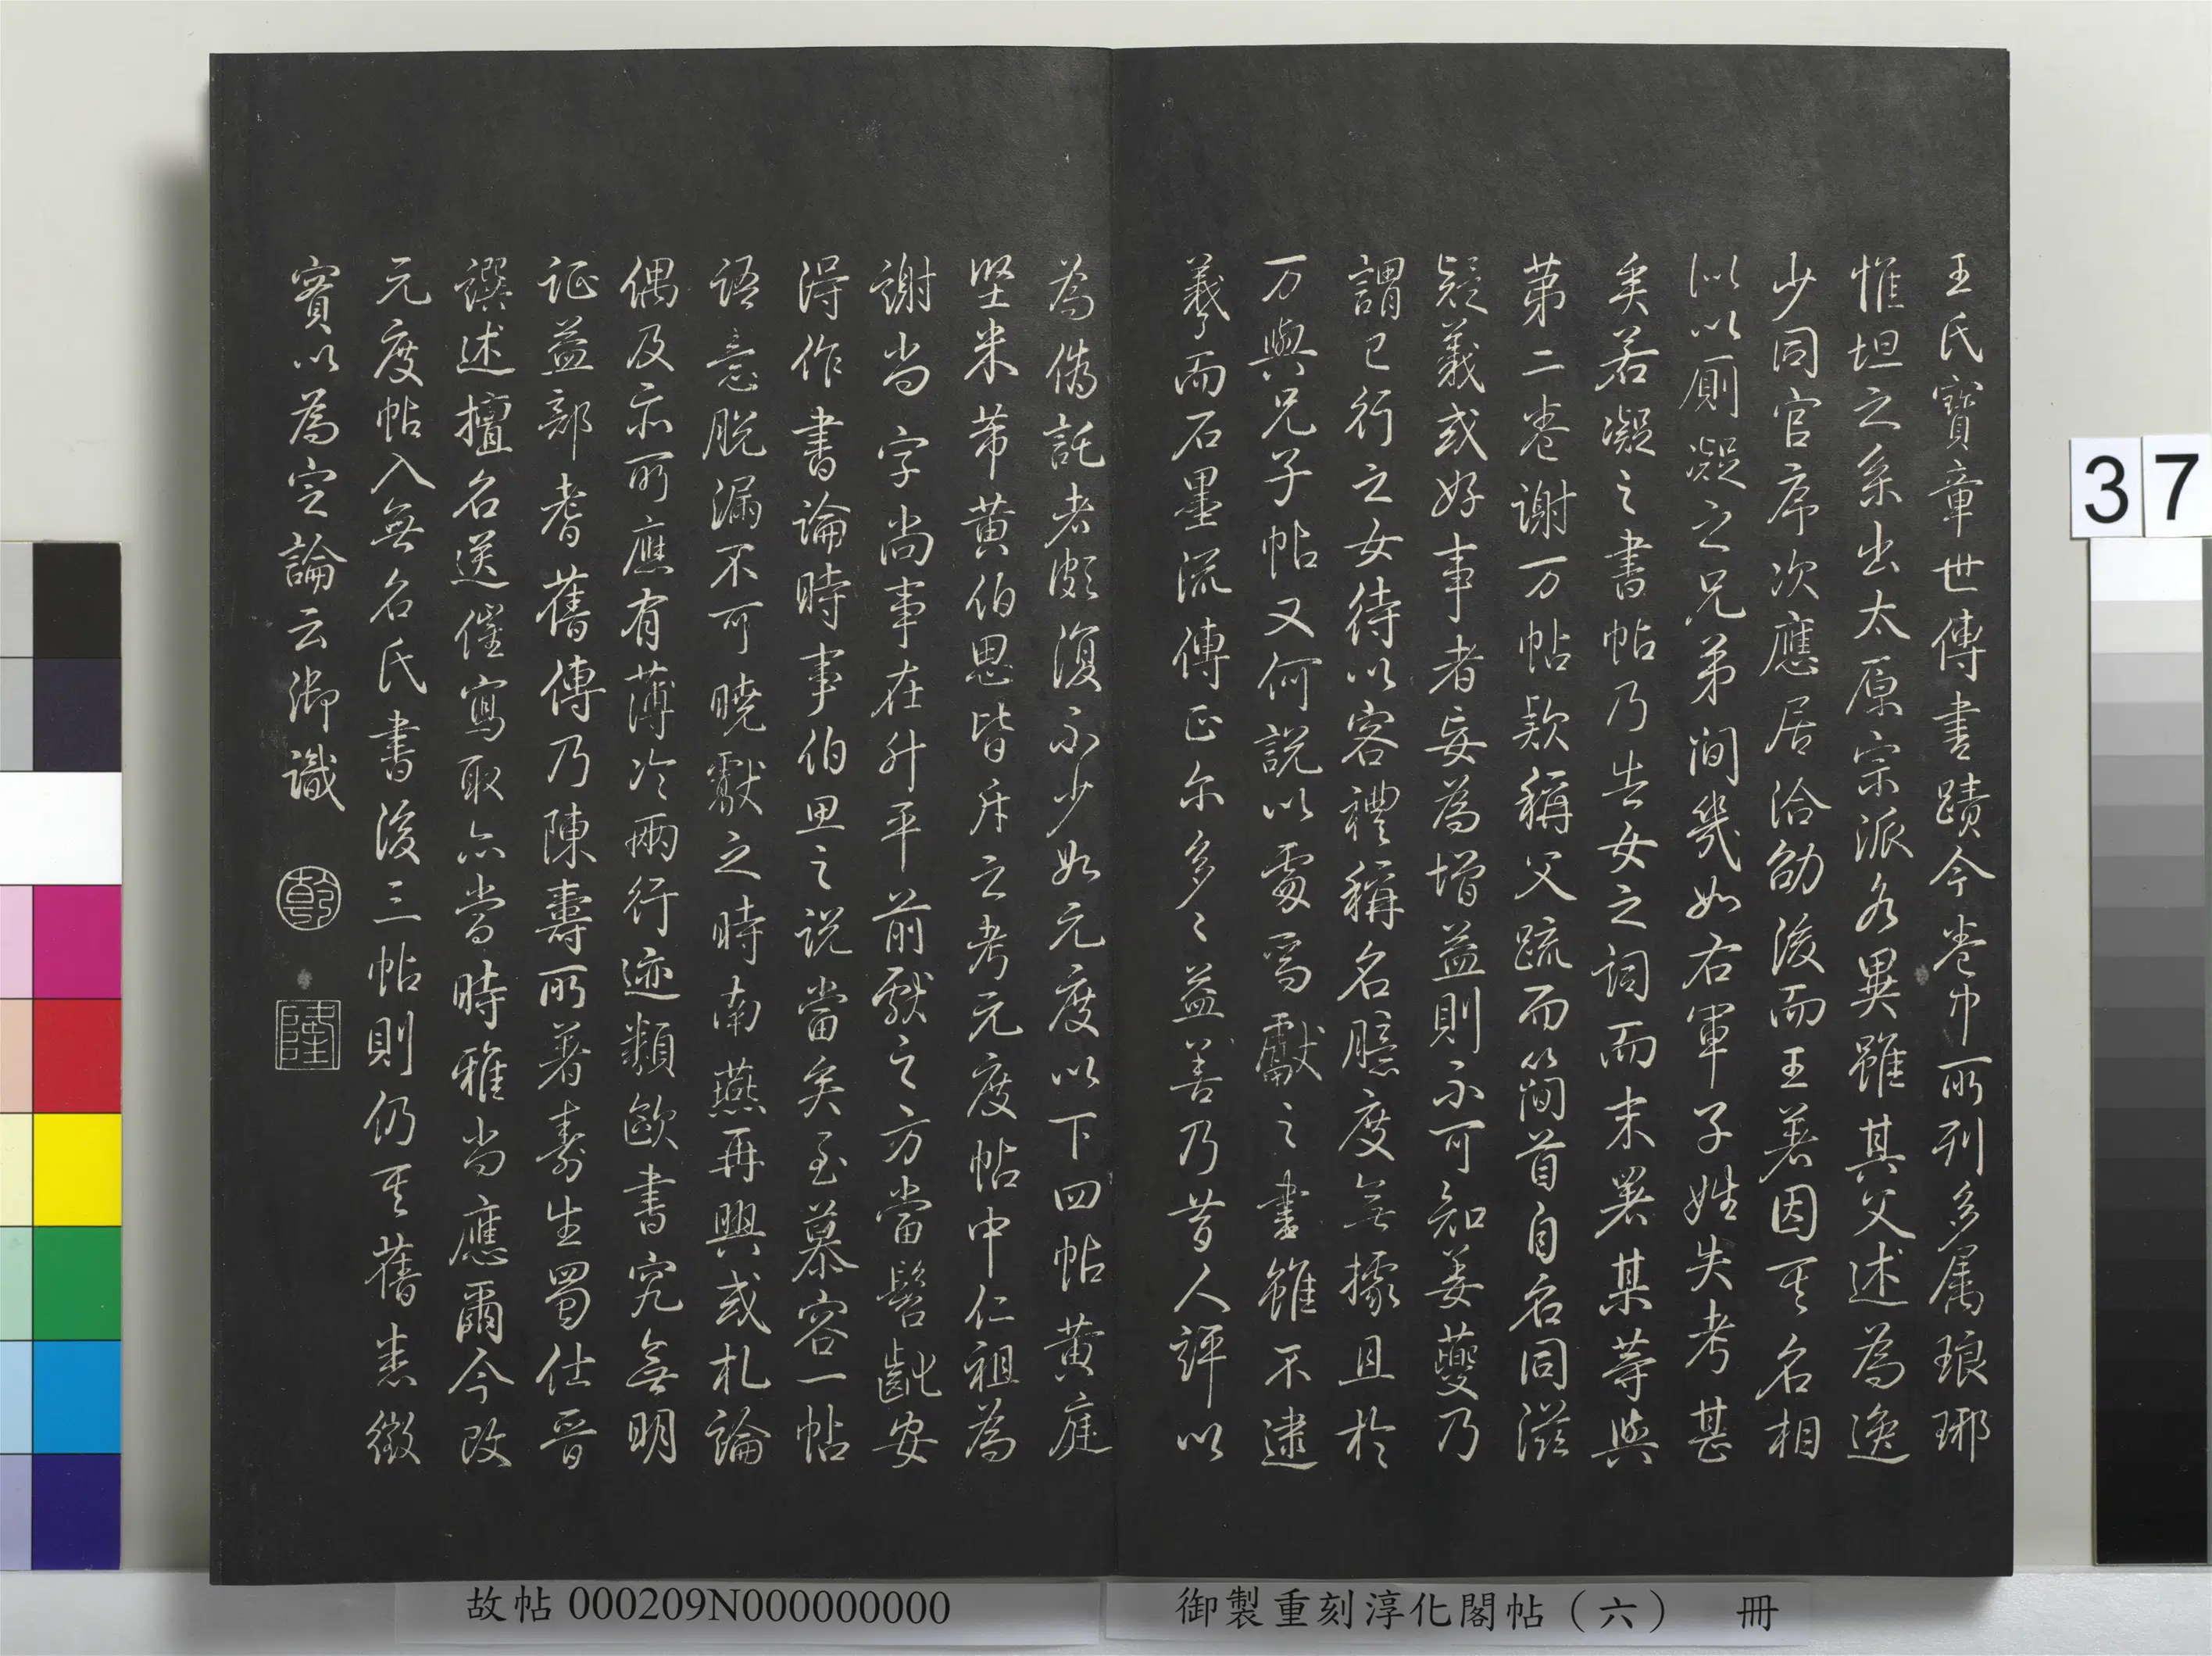 王氏寶章世傳書蹟今卷中所列多属琅琊
惟坦之系出太原宗派各異雖其父述為逸
少同官序次應居洽劭後而王著因其名相
似以厠凝之兄弟間幾如右軍子姓失考甚
矣若凝之書帖乃告女之詞而末署某等與
第二卷謝万帖款稱父疏而簡首自名同滋
疑義或好事者妄為增益則不可知姜夔乃
謂已行之女待以客禮稱名臆度無據且於
万與兄子帖又何說以處焉獻之書雖不逮
羲而石墨流傳正尔多多益善乃昔人評以
為偽託者頗復不少如元度以下四帖黄庭
堅米芾黄伯思皆斥之考元度帖中仁祖為
謝尚字尚事在升平前獻之方當髫齔安
得作書論時事伯思之説當矣至慕容一帖
語意脱漏不可曉獻之時南燕再興或札論
偶及亦所應有薄冷兩行迹類歐書究無明
証益部耆舊傳乃陳壽所著壽生蜀仕晉
譔述擅名送催寫取亦當時雅尚應爾今改
元度帖入無名氏書後三帖則仍其舊悉徵
實以為定論云御識
乾
隆
37
故帖 000209N000000000
御製重刻淳化閣帖（六） 冊